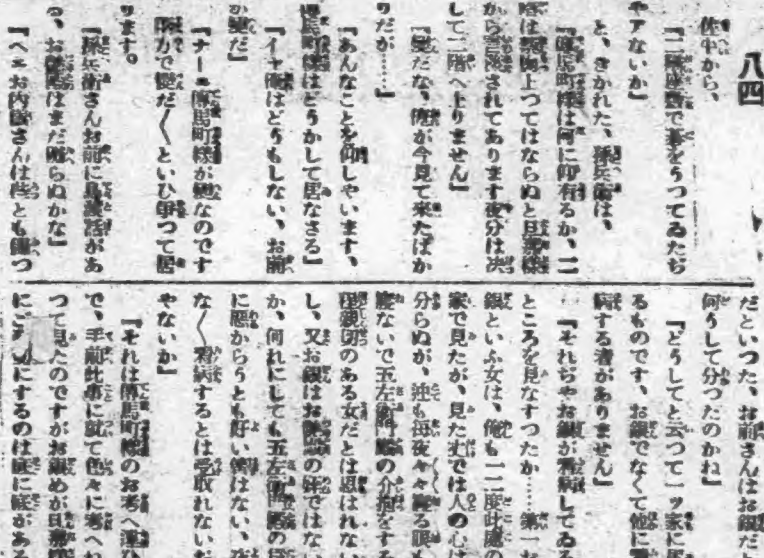 八四
佐平から、
『二階座敷で碁をうつてゐたぢ
やアないか』
と、きかれた、孫兵衞は、
『傳馬町様は何に仰有るか、二
階は 上つてはならぬと旦那様
から されてあります夜分は决
して二階へ上りません』
『變だな、俺が今見て來たばか
りだが……』
『あんなことを仰しやいます、
傳馬町様はどうかして居なさる』
『イヤ俺はどうもしない、お前
が變だ』
『ナーニ傳馬町様が變なのです
双方で變だ〱といひ爭つて居
ります。
『孫兵衞さんお前に 話があ
る、お はまだ らぬかな』
『ヘエお内儀さんは とも つ
だといつた、お前さんはお銀だと
何うして分つたのかね』
『どうしてと云つて一ツ家に居
るものです、お銀でなくて他に看
病する者がありません』
『それぢやお銀が看病してゐる
ところを見なすつたか……第一お
銀といふ女は、俺も一二度此處の
家で見たが、見た丈では人の心は
分らぬが、迚も毎夜々々睡る眼も
寢ないで五左衞門 の介抱をする
程親切のある女だとは思はれない
し、又お銀はお の ではない
か、何れにしても五左衞門 の
に惡からうとも好い はない、
な〱看病するとは受取れない
やないか』
『それは傳馬町様のお考へ違ひ
で、手前此事に就て色々に考へ
つて見たのですがお銀めが旦那様
にご 切にするのは に底がある